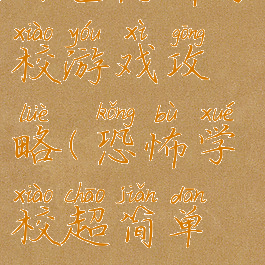 xiào yóu xì gōng
校游戏攻
lüè kǒng bù xué
略(恐怖学
xiào chāo jiǎn dān
校超简单